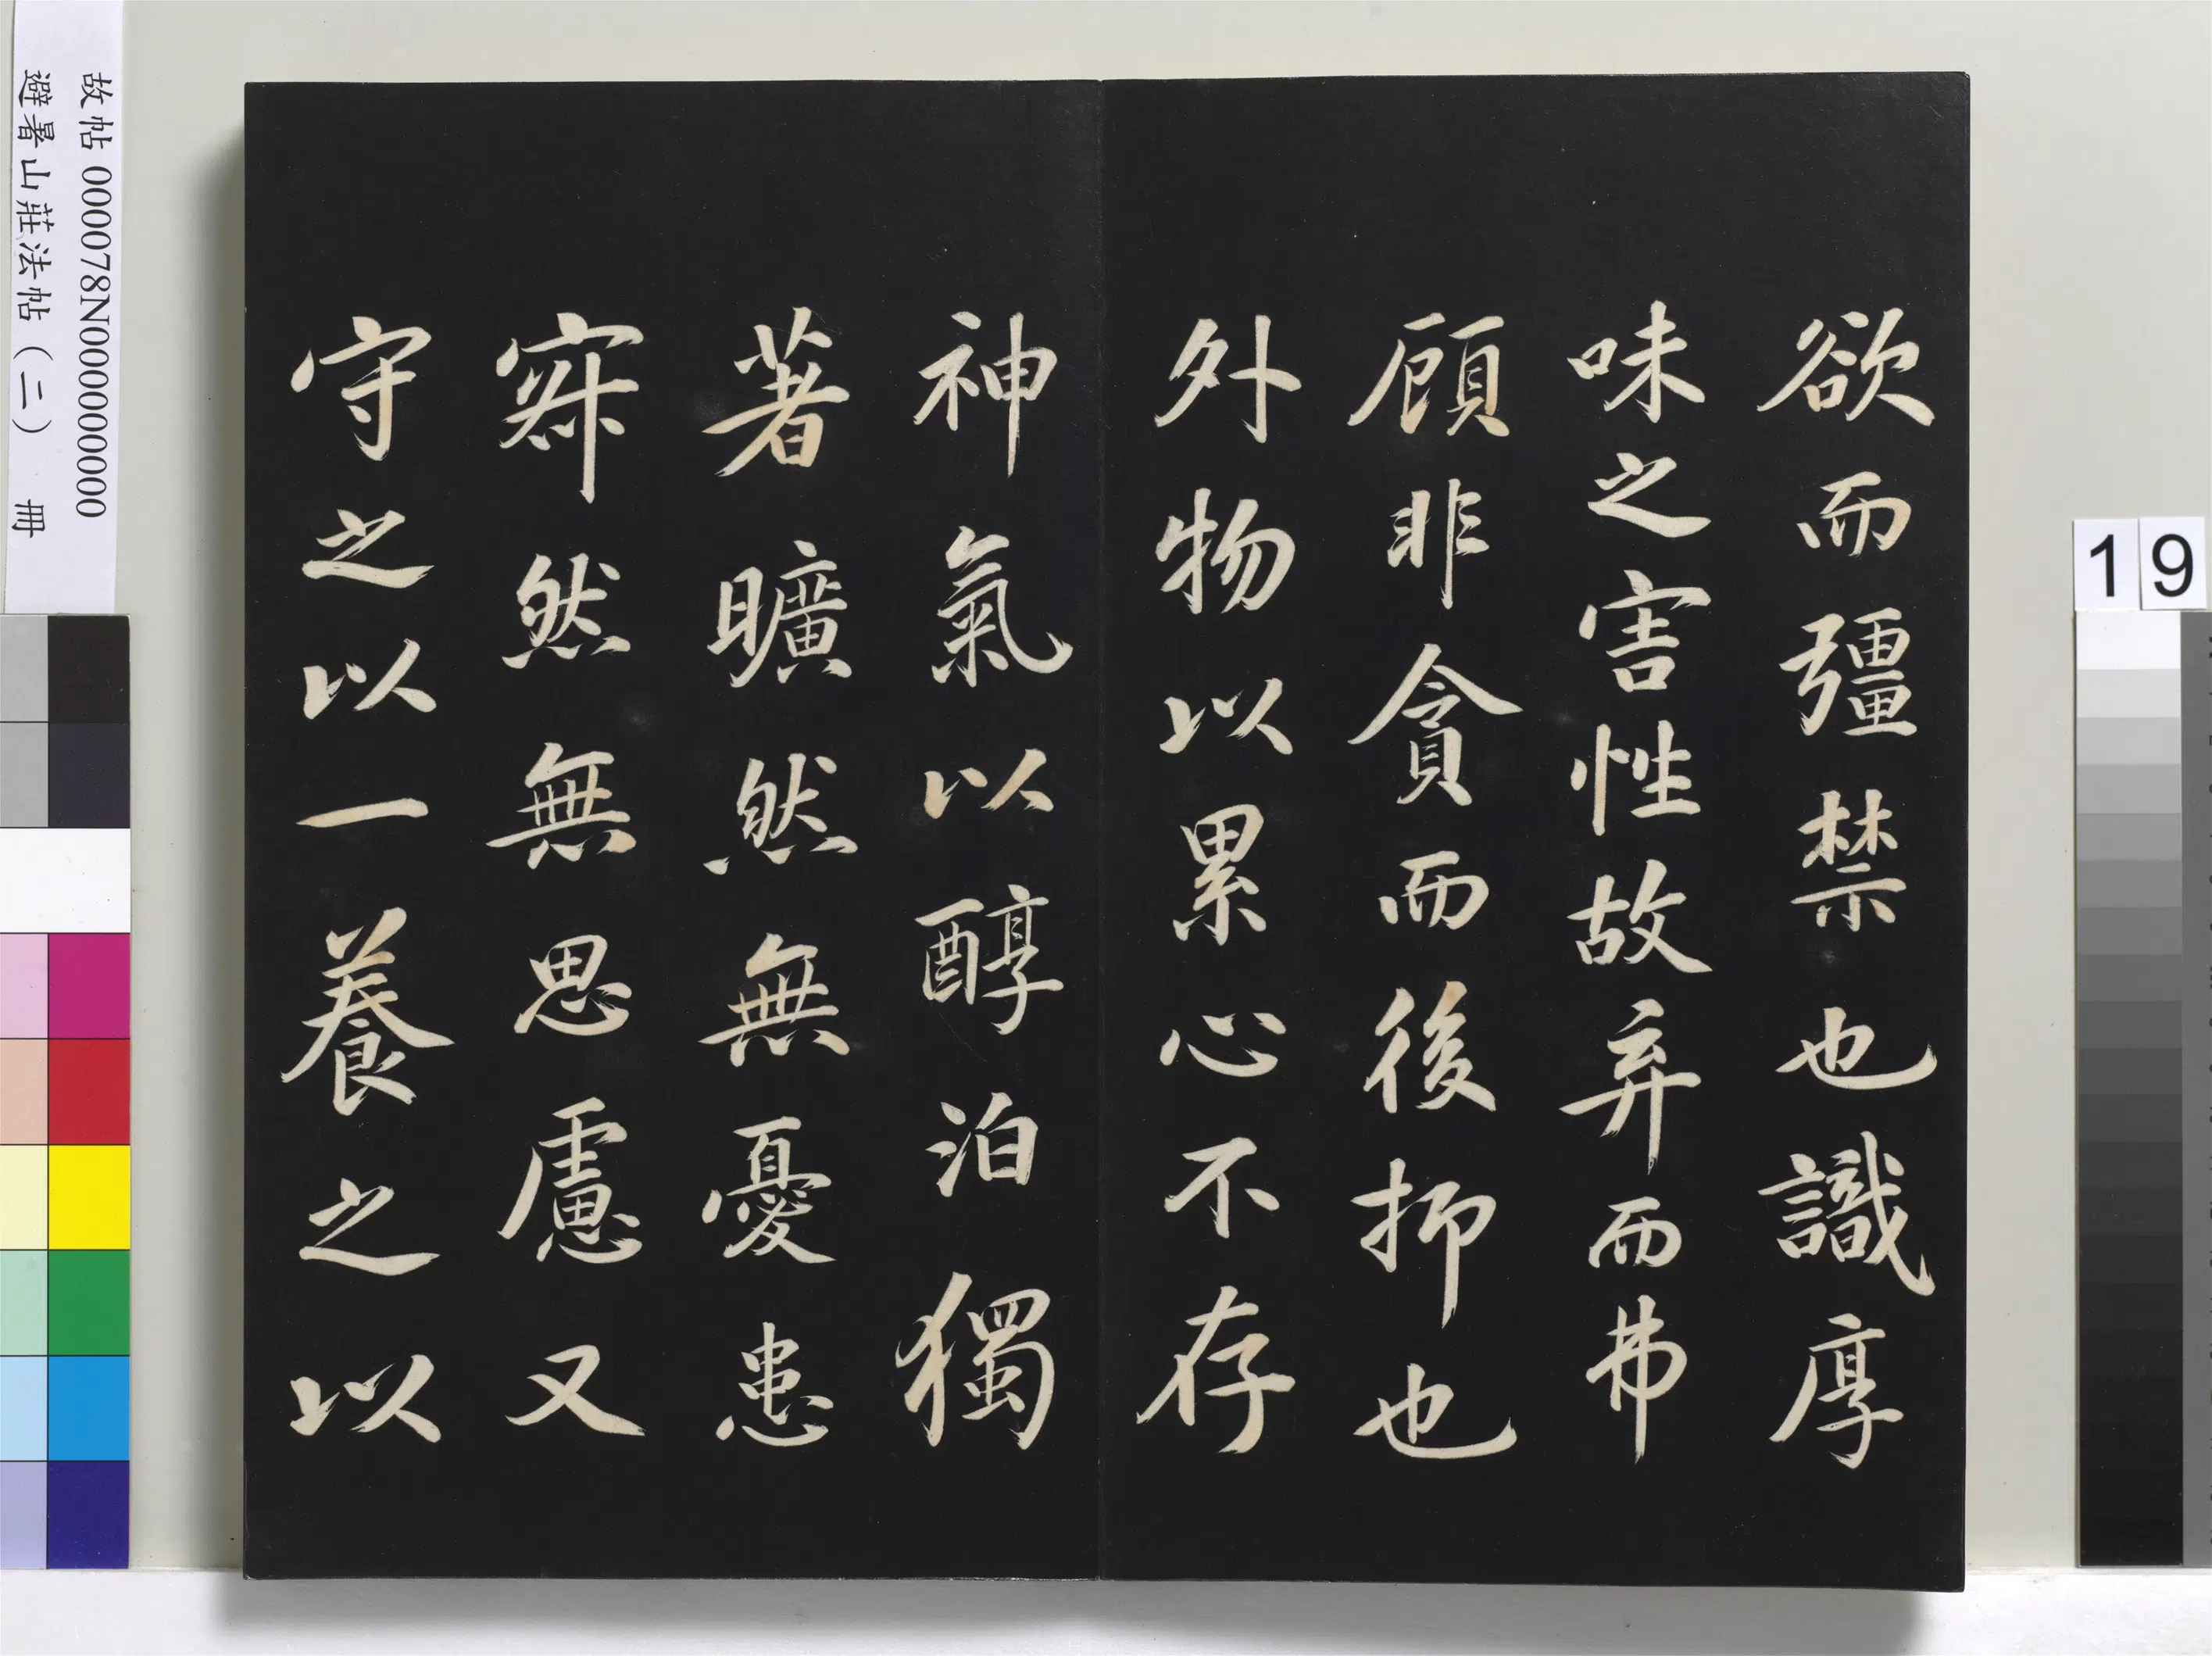 欲而彊禁也識厚
味之害性故弃而弗
顧非貪而後抑也
外物以累心不存
神氣以醇泊獨
著曠然無憂患
寂然無思慮又
守之以一養之以
故帖 000078N000000000
避暑山莊法帖（二） 冊
19